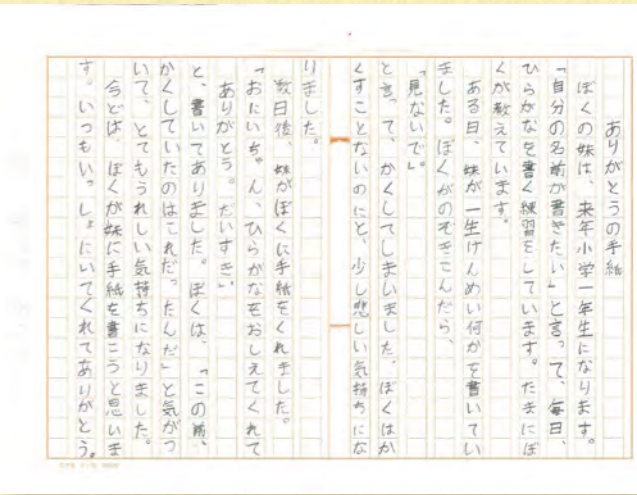 ありがとうの手紙
ぼくの妹は、来年小学一年生になります。
「自分の名前が書きたい」と言って、毎日、
ひらがなを書く練習をしています。たまにぼ
くが教えています。
ある日、妹が一生けんめい何かを書いてい
ました。ぼくがのぞきこんだら、
「見ないで」。
と言って、かくしてしまいました。ぼくはか
くすことないのにと、少し悲しい気持ちにな
りました。
数日後、妹がぼくに手紙をくれました。
「おにいちゃん、ひらがなをおしえてくれて
ありがとう。だいすき」
と、書いてありました。ぼくは、「この前、
かくしていたのはこれだったんだ」と気がつ
いて、とてもうれしい気持ちになりました。
今どは、ぼくが妹に手紙を書こうと思いま
す。いつもいっしょにいてくれてありがとう。